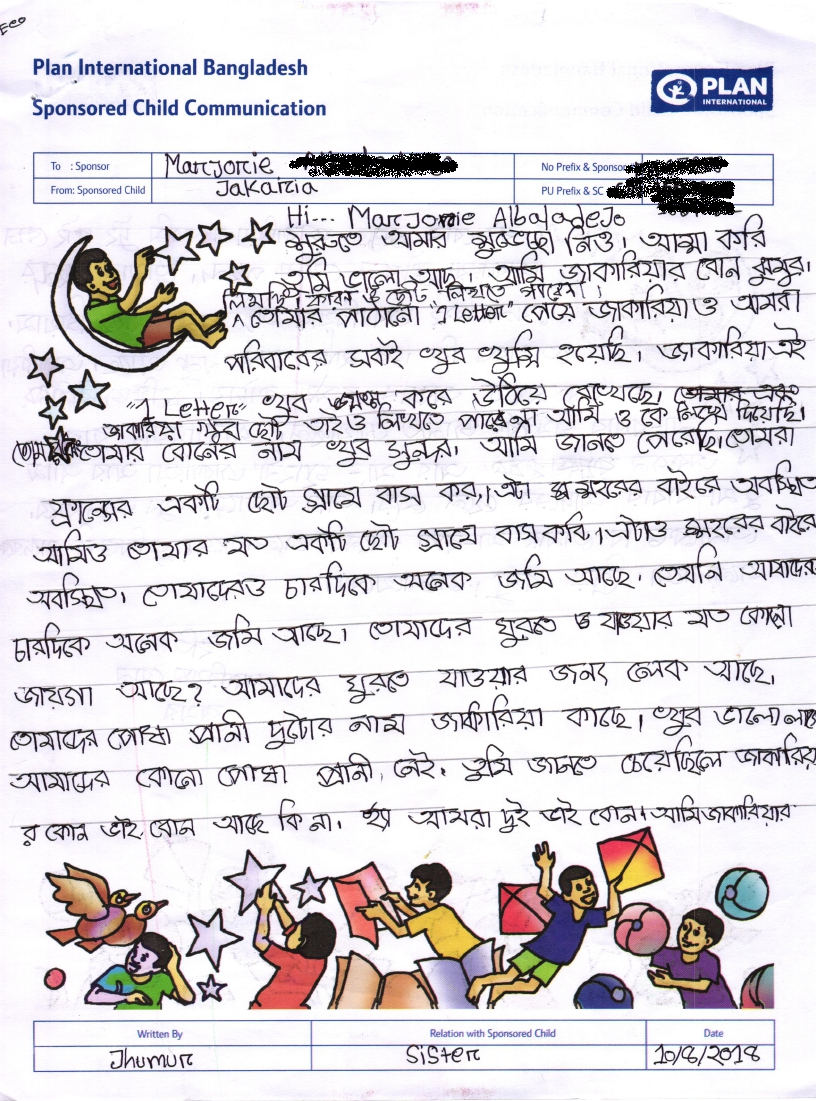 Eco
Plan International Bangladesh
Sponsored Child Communication
PLAN
INTERNATIONAL
To : Sponsor Marjorie No Prefix & Sponsor
From: Sponsored Child Jakaria PU Prefix & SC
Hi--- Marjorie Albaladejo
শুরুতে আমার শুভেচ্ছা নিও। আশা করি
তুমি ভালো আছ। আমি জাকারিয়ার বোন ঝুমুর।
লিখছি, কারণ ও ছোট লিখতে পারেনা।
তোমার পাঠানো "1 Letter" পেয়ে জাকারিয়া ও আমরা
পরিবারের সবাই খুব খুশি হয়েছি। জাকারিয়া এই
"1 Letter" খুব করে উঠিয়ে রেখেছে।
জাকারিয়া খুব ছোট তাই ও লিখতে পারে না আমি ও কে লিখে দিয়েছি।
তোমার বোনের নাম খুব সুন্দর। আমি জানতে পেরেছি, তোমরা
ফ্রান্সের একটি ছোট গ্রামে বাস কর, এটা শহরের বাইরে অবস্থিত
আমিও তোমার মত একটি ছোট গ্রামে বাস করি, এটাও শহরের বাইরে
অবস্থিত। তোমাদেরও চারদিকে অনেক জমি আছে। তেমনি আমাদের
চারদিকে অনেক জমি আছে। তোমাদের ঘুরতে যাওয়ার মত কোনো
জায়গা আছে? আমাদের ঘুরতে যাওয়ার জন্য লেক আছে।
তোমাদের পোষা প্রানী দুটোর নাম জাকারিয়া কাছে। খুব ভালো লাগে
আমাদের কোনো পোষা প্রানী নেই। তুমি জানতে চেয়েছিলে জাকারিয়া
র কোন ভাই বোন আছে কি না। হ্যাঁ আমরা দুই ভাই বোন। আমি জাকারিয়ার
Written By Relation with Sponsored Child Date
Jhumur Sister 10/8/2018